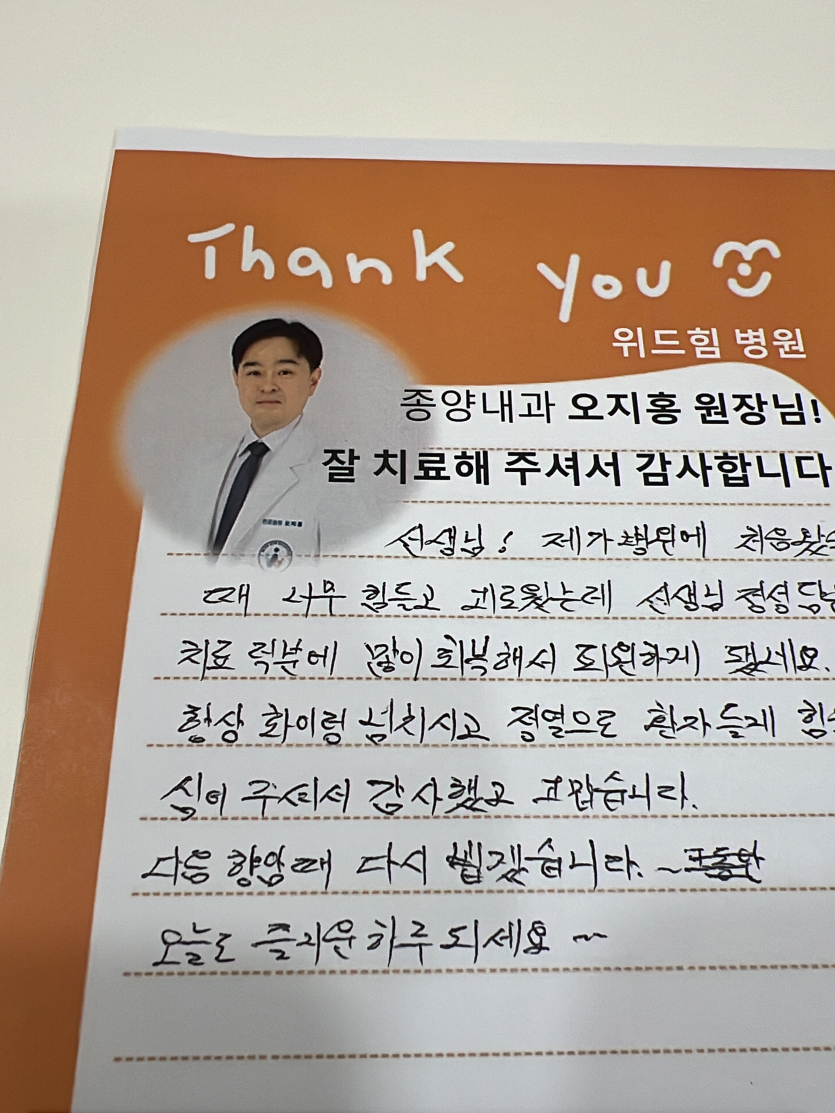 Thank you
위드힘 병원
종양내과 오지홍 원장님!
잘 치료해 주셔서 감사합니다
선생님! 제가 병원에 처음왔
때 너무 힘들고 괴로웠는데 선생님 정성담
치료 덕분에 많이 회복해서 퇴원하게 됐네요.
항상 화이링 넘치시고 정열으로 환자들게 힘
심어 주셔서 감사했고 고맙습니다.
다음 항암때 다시 뵙겠습니다. ~
오늘도 즐거운 하루 되세요 ~